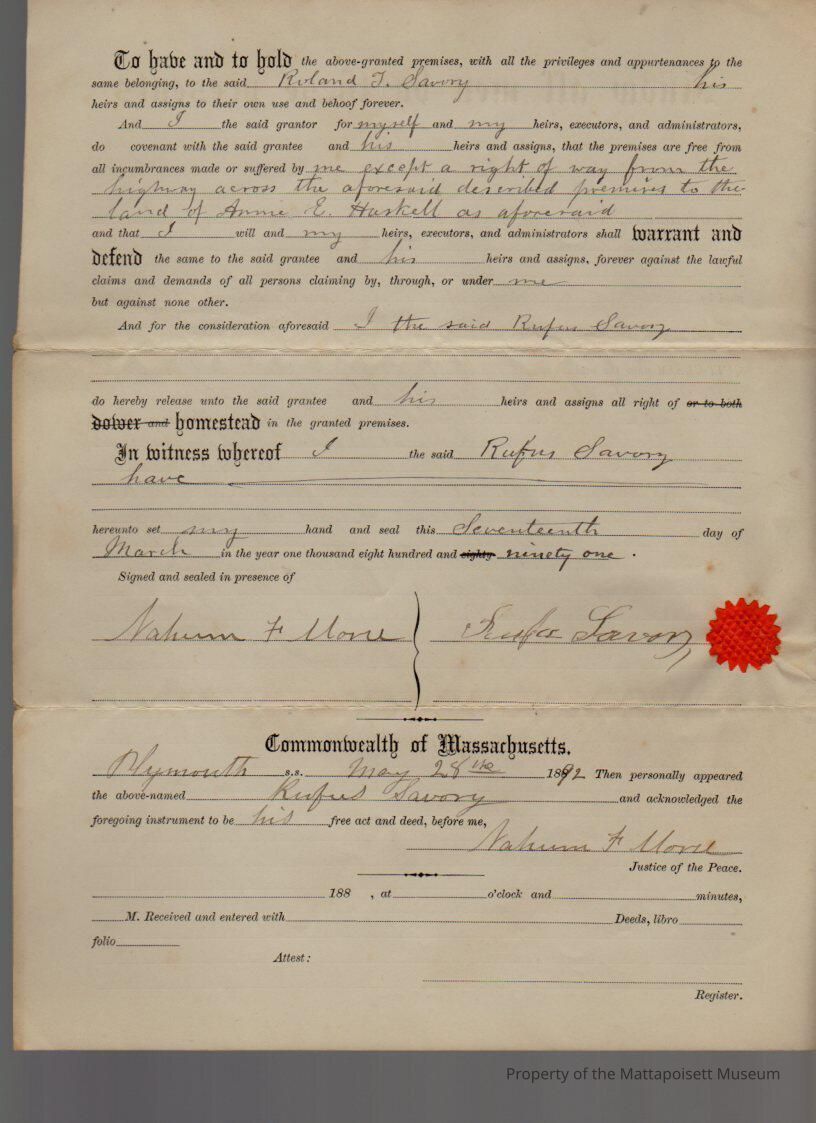 To have and to hold the above-granted premises, with all the privileges and appurtenances to the
same belonging, to the said Roland T. Savory his
heirs and assigns to their own use and behoof forever.
And I the said grantor for myself and my heirs, executors, and administrators,
do covenant with the said grantee and his heirs and assigns, that the premises are free from
all incumbrances made or suffered by me except a right of way from the
highway across the aforesaid described premises to the
land of Annie E. Haskell as aforesaid
and that I will and my heirs, executors, and administrators shall warrant and
defend the same to the said grantee and his heirs and assigns, forever against the lawful
claims and demands of all persons claiming by, through, or under me
but against none other.
And for the consideration aforesaid I the said Rufus Savory
do hereby release unto the said grantee and his heirs and assigns all right of or to both
dower and homestead in the granted premises.
In witness whereof I the said Rufus Savory
have
hereunto set my hand and seal this Seventeenth day of
March in the year one thousand eight hundred and eighty ninety one .
Signed and sealed in presence of
Nahum F Morse Rufus Savory
Commonwealth of Massachusetts.
Plymouth s.s. May 28th 1892 Then personally appeared
the above-named Rufus Savory and acknowledged the
foregoing instrument to be his free act and deed, before me,
Nahum F Morse
Justice of the Peace.
188 , at o'clock and minutes,
M. Received and entered with Deeds, libro
folio
Attest:
Register.
Property of the Mattapoisett Museum